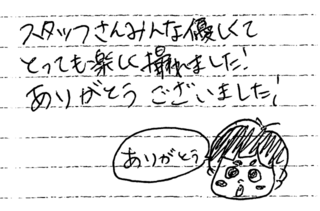 スタッフさんみんな優しくて
とっても楽しく撮れました!
ありがとうございました!
ありがとう